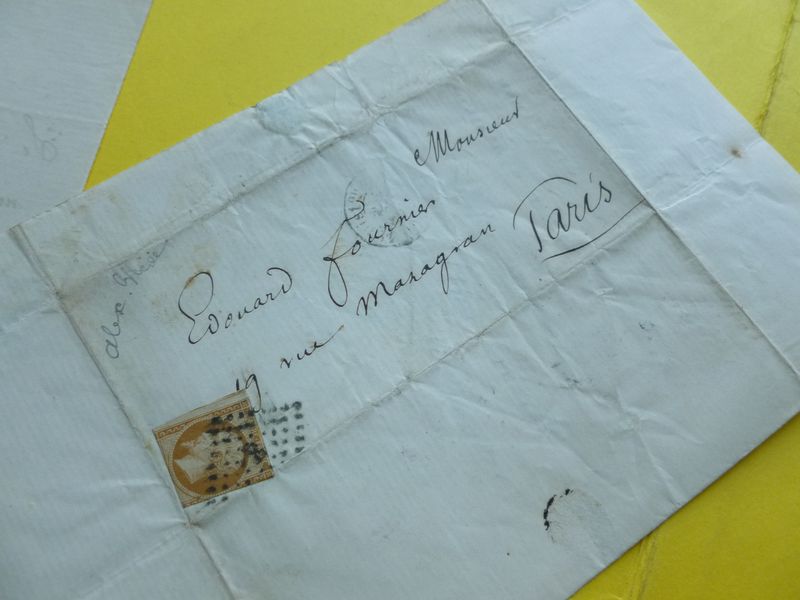 Monsieur
Edouard fournier
19 rue Mazagran
Paris
Alex.